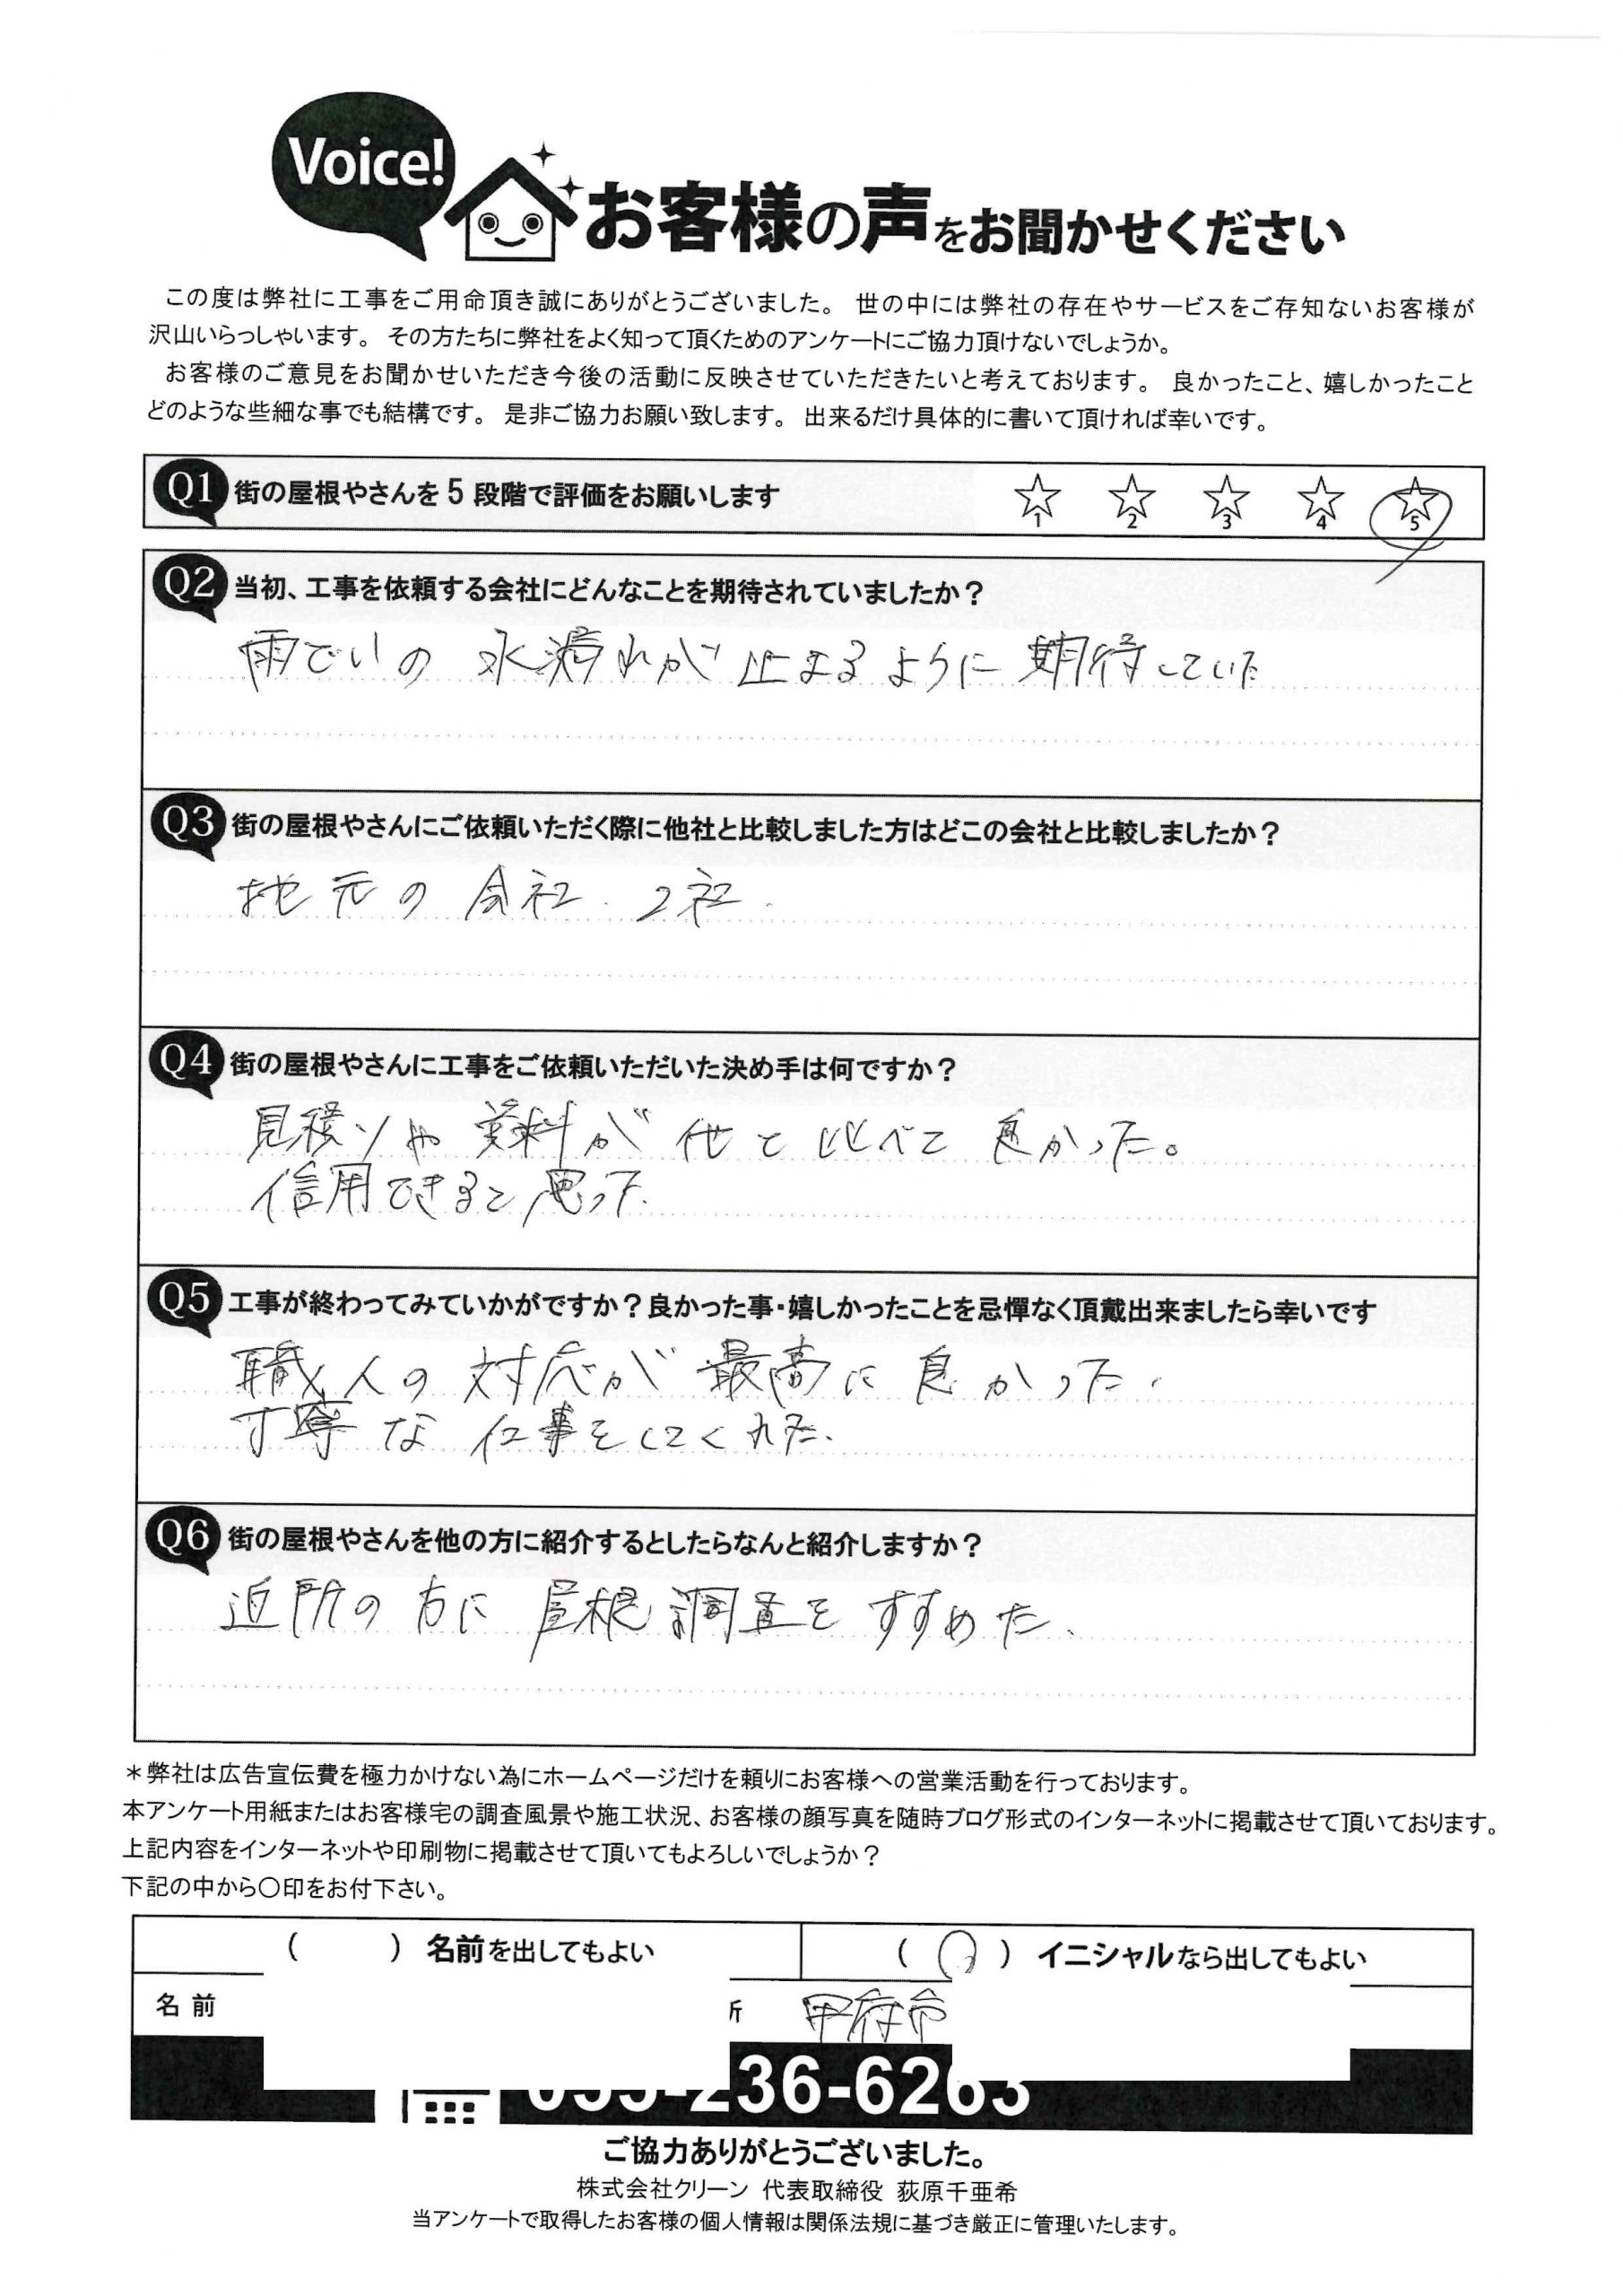 Voice!
お客様の声をお聞かせください
この度は弊社に工事をご用命頂き誠にありがとうございました。 世の中には弊社の存在やサービスをご存知ないお客様が
沢山いらっしゃいます。 その方たちに弊社をよく知って頂くためのアンケートにご協力頂けないでしょうか。
お客様のご意見をお聞かせいただき今後の活動に反映させていただきたいと考えております。 良かったこと、嬉しかったこと
どのような些細な事でも結構です。 是非ご協力お願い致します。 出来るだけ具体的に書いて頂ければ幸いです。
Q1 街の屋根やさんを5段階で評価をお願いします ☆1 ☆2 ☆3 ☆4 ☆5
Q2 当初、工事を依頼する会社にどんなことを期待されていましたか？
雨どいの 水漏れが 止まるように 期待していた
Q3 街の屋根やさんにご依頼いただく際に他社と比較しました方はどこの会社と比較しましたか？
地元の 会社. 2社.
Q4 街の屋根やさんに工事をご依頼いただいた決め手は何ですか？
見積りや 資料が 他と 比べて 良かった。
信用できると思った.
Q5 工事が終わってみていかがですか？良かった事・嬉しかったことを忌憚なく頂戴出来ましたら幸いです
職人の 対応が 最高に 良かった.
丁寧な 仕事をしてくれた.
Q6 街の屋根やさんを他の方に紹介するとしたらなんと紹介しますか？
近所の 方に 屋根 調査を すすめた.
＊弊社は広告宣伝費を極力かけない為にホームページだけを頼りにお客様への営業活動を行っております。
本アンケート用紙またはお客様宅の調査風景や施工状況、お客様の顔写真を随時ブログ形式のインターネットに掲載させて頂いております。
上記内容をインターネットや印刷物に掲載させて頂いてもよろしいでしょうか？
下記の中から〇印をお付下さい。
（　　）名前を出してもよい （〇）イニシャルなら出してもよい
名前 甲府市
236-6263
ご協力ありがとうございました。
株式会社クリーン 代表取締役 荻原千亜希
当アンケートで取得したお客様の個人情報は関係法規に基づき厳正に管理いたします。